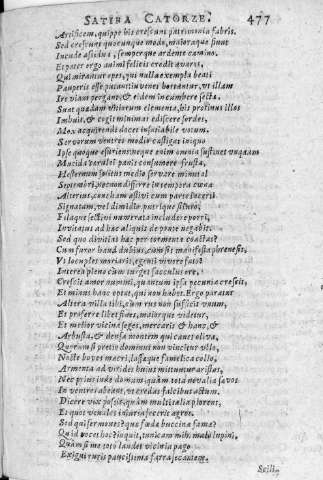 SATIRA CATORZE. 477
Artificem, quippe his crescunt patrimonia fabris.
Sed crescunt quocunque modo, maioraque fiunt
Incude assidua, semperque ardente camino.
Et pater ergo animi felices credit avaros,
Qui miratur opes, qui nulla exempla beati
Pauperis esse putat: iuvenes hortatur, ut illam
Ire viam pergant, & eidem incumbere sectæ.
Sunt quædam vitiorum elementa, his protinus illos
Imbuit, & cogit minimas ediscere sordes,
Mox acquirendi docet insatiabile votum.
Servorum ventres modio castigat iniquo
Ipse quoque esuriens: neque enim omnia sustinet unquam
Mucida cærulei panis consumere frusta,
Hesternum solitus medio servare minutal
Septembri, nec non differre in tempora cœnæ
Alterius, conchem æstivi cum parte lacerti
Signatam, vel dimidio putrique siluro,
Filaque sectivi numerata includere porri,
Invitatus ad hæc aliquis de ponte negabit.
Sed quo divitias hæc per tormenta coactas?
Cum furor haud dubius, cum sit manifesta phrenesis,
Vt locuples moriaris, egenti vivere fato?
Interea pleno cùm turget sacculus ore,
Crescit amor nummi, quantum ipsa pecunia crescit,
Et minus hanc optat, qui non habet. Ergo paratur
Altera villa tibi, cùm rus non sufficit unum,
Et proferre libet fines, maiorque videtur,
Et melior vicina seges, mercaris & hanc, &
Arbusta, & densa montem qui canet oliva,
Quorum si pretio dominus non vincitur ullo,
Nocte boves macri, lassoque famelica collo,
Armenta ad virides huius mittuntur aristas,
Nec prius inde domum, quàm tota novalia sævos
In ventres abeant, ut credas falcibus actum.
Dicere vix possis, quàm multi talia plorent,
Et quot venales iniuria fecerit agros.
Sed qui sermones? quæ fœda buccina famæ?
Quid nocet hoc? inquit, tunicam mihi malo lupini,
Quàm si me toto laudet vicinia pago
Exigui ruris paucissima farra secantem.
Scili-